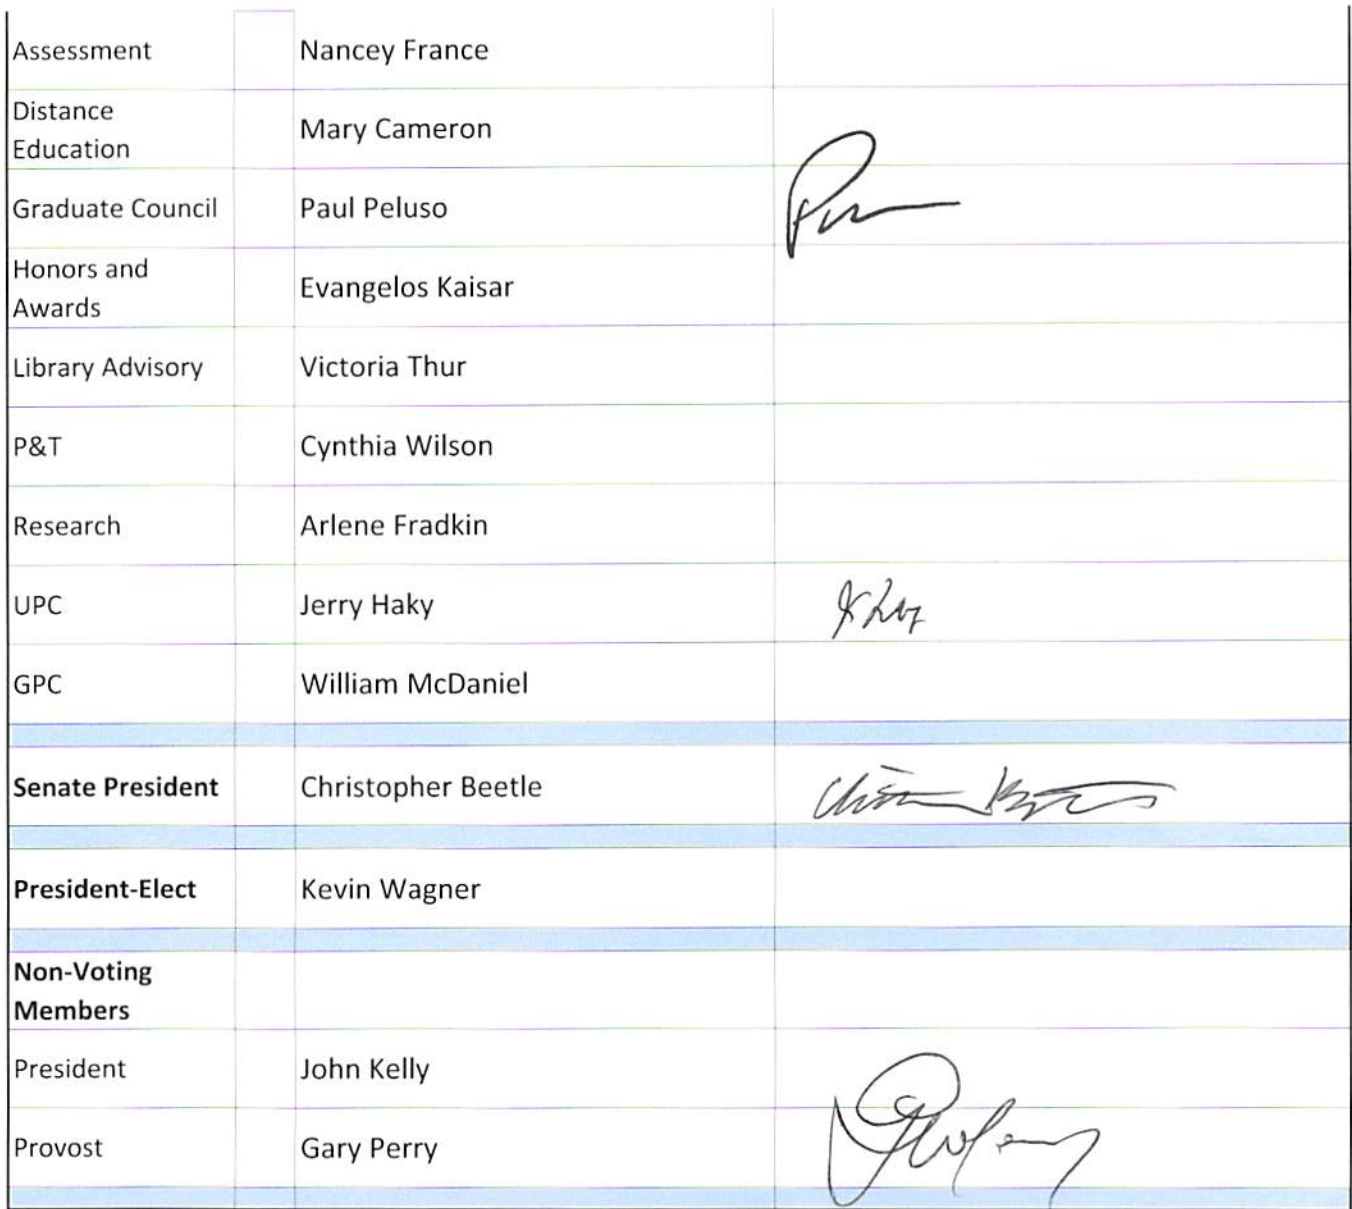 Assessment Nancey France
Distance
Education
Mary Cameron
Graduate Council Paul Peluso
Honors and
Awards
Evangelos Kaisar
Library Advisory Victoria Thur
P&T Cynthia Wilson
Research Arlene Fradkin
UPC Jerry Haky
GPC William McDaniel
Senate President Christopher Beetle
President-Elect Kevin Wagner
Non-Voting
Members
President John Kelly
Provost Gary Perry